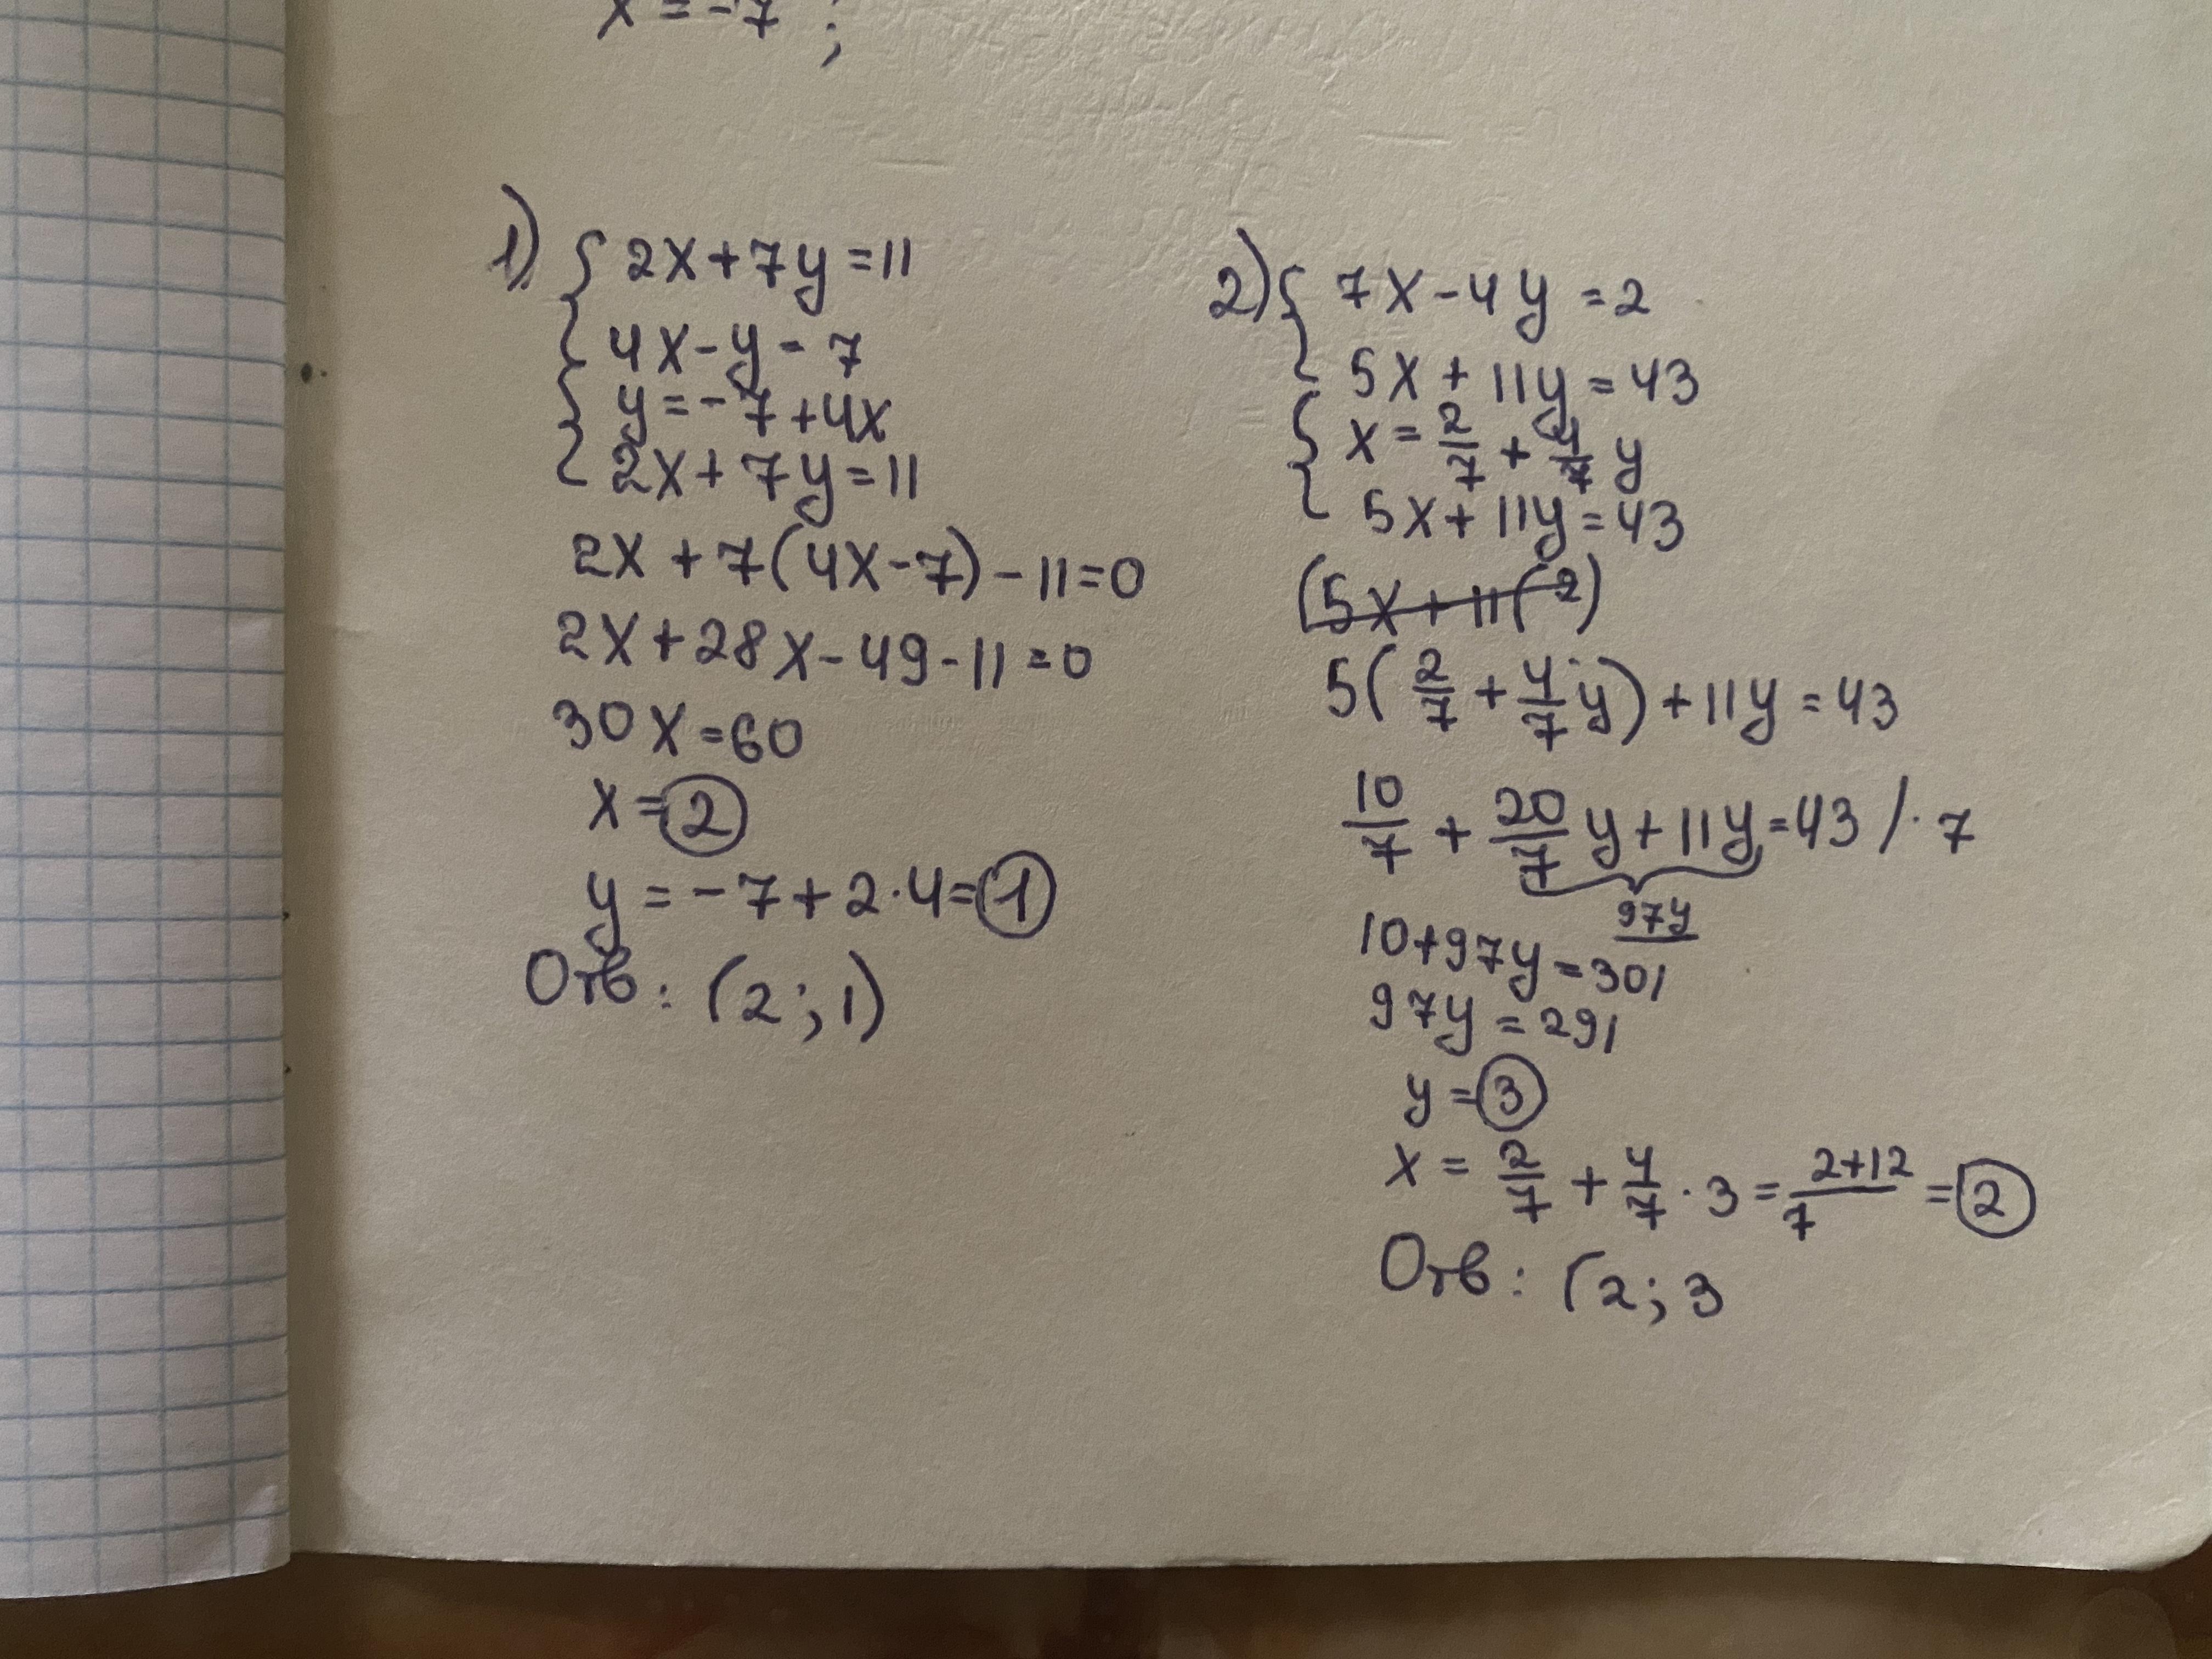 x = -7 ;
1) { 2x + 7y = 11
4x - y = 7
{ y = -7 + 4x
2x + 7y = 11
2x + 7(4x - 7) - 11 = 0
2x + 28x - 49 - 11 = 0
30x = 60
x = 2
y = -7 + 2 · 4 = 1
Отв: (2; 1)
2) { 7x - 4y = 2
5x + 11y = 43
{ x = 2/7 + 4/7 y
5x + 11y = 43
(5x + 11(2)
5(2/7 + 4/7 y) + 11y = 43
10/7 + 20/7 y + 11y = 43 / · 7
97y
10 + 97y = 301
97y = 291
y = 3
x = 2/7 + 4/7 · 3 = 2+12/7 = 2
Отв: (2; 3